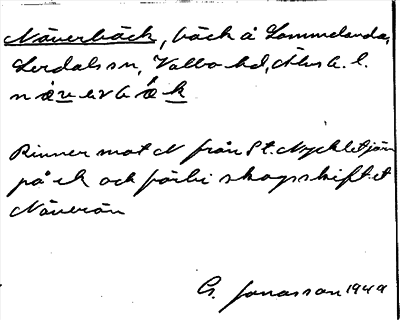 Näverbäck, bäck å Sammelanda,
Lerdals sn, Valbo hd, Älvsb. l.
Rinner mot N från St. Nyckletjärn
på ek och förbi skogsskiftet
Näverön
G. Jonasson 1949